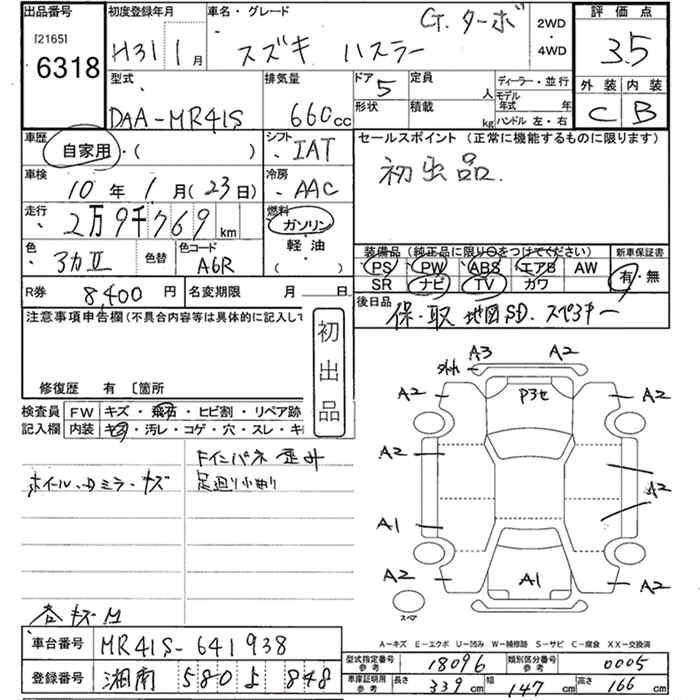 出品番号 [2165] 6318
初度登録年月 H31 1月
車名・グレード スズキ ハスラー Gターボ
2WD・4WD
評価点 3.5
外装 C 内装 B
型式 DAA-MR41S
排気量 660cc
ドア 5 形状
定員 人 積載 kg
ディーラー・並行
モデル年式 年
ハンドル 左・右
車歴 自家用・( )
シフト IAT
セールスポイント (正常に機能するものに限ります)
初出品.
車検 10年 1月(23日)
冷房 AAC
走行 2万9千769km
燃料 ガソリン・軽油 ( )
色 3カⅡ 色替 色コード A6R
装備品(純正品に限り○をつけてください)
PS PW ABS エアB AW
SR ナビ TV カワ
新車保証書 有・無
R券 8,400円 名変期限 月 日
後日品 保・取 地図SD. スペアキー
注意事項申告欄(不具合内容等は具体的に記入して
初出品
修復歴 有 〔箇所
検査員記入欄
FW キズ・飛石・ヒビ割・リペア跡
内装 キズ・汚レ・コゲ・穴・スレ・キ
ホイール.Dミラーキズ
Fインパネ歪み
足廻り小サリ
外 A3 A2
A2 P3セ A2
A2 A2
A1
A2 A1 A2
スペア
A-キズ E-エクボ U-凹み W-補修跡 S-サビ C-腐食 XX-交換済
車台番号 MR41S-641938
登録番号 湘南 580 よ 848
型式指定番号 参考 18096 類別区分番号 参考 0005
車庫証明用 参考 長さ 339cm 幅 147cm 高さ 166cm